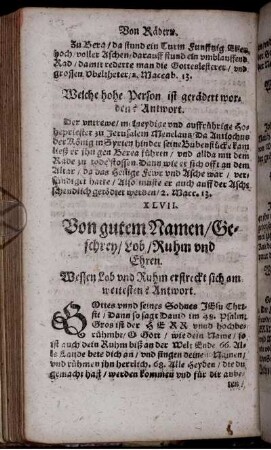 Von Rädern.
Zu Berea / da stund ein Turm Funfftzig Elen
hoch / voller Aschen / darauff stund ein vmblauffend
Rad / damit rederte man die Gotteslesterer / vnd
grossen Vbeltheter / 2. Maccab. 13.
Welche hohe Person ist gerädert wor-
den? Antwort.
Der vntrewe / meineydige vnd auffrührige Ho-
hepriester zu Jerusalem Menelaus / Da Antiochus
der König in Syrien hinder seine Bubenstücke kam /
ließ er ihn gen Berea führen / vnd allda mit dem
Rade zu stossen / Denn wie er sich offt an dem
Altar / da das Heilige Fewr vnd Asche war / ver-
sündiget hatte / Also muste er auch auff der Asche
schendlich getödtet werden / 2. Macc. 13.
XLVII.
Von gutem Namen / Ge-
schrey / Lob / Ruhm vnd
Ehren.
Wessen Lob vnd Ruhm erstreckt sich am
weitesten? Antwort.
GOttes vnnd seines Sohnes JEsu Chri-
sti / Dann so sagt Dauid im 48. Psalm:
Gros ist der HERR vnnd hochbe-
rühmbt / O Gott / wie dein Name / so
ist auch dein Ruhm biß an der Welt Ende. 66. Al-
le Lande bete dich an / vnd singen deinem Namen /
vnd rühmen ihn herrlich. 68. Alle Heyden / die du
gemacht hast / werden kommen vnd für dir anbe-
ten /